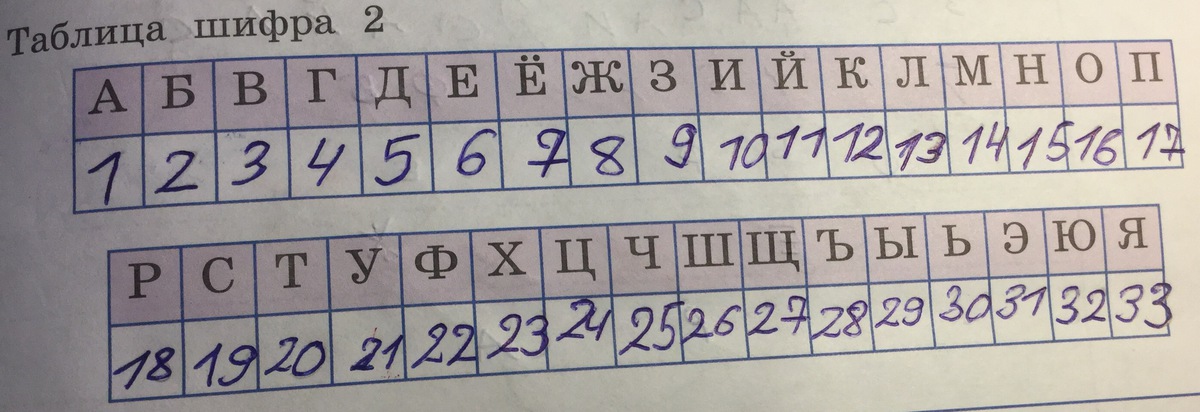 Таблица шифра 2
А Б В Г Д Е Ё Ж З И Й К Л М Н О П
1 2 3 4 5 6 7 8 9 10 11 12 13 14 15 16 17
Р С Т У Ф Х Ц Ч Ш Щ Ъ Ы Ь Э Ю Я
18 19 20 21 22 23 24 25 26 27 28 29 30 31 32 33